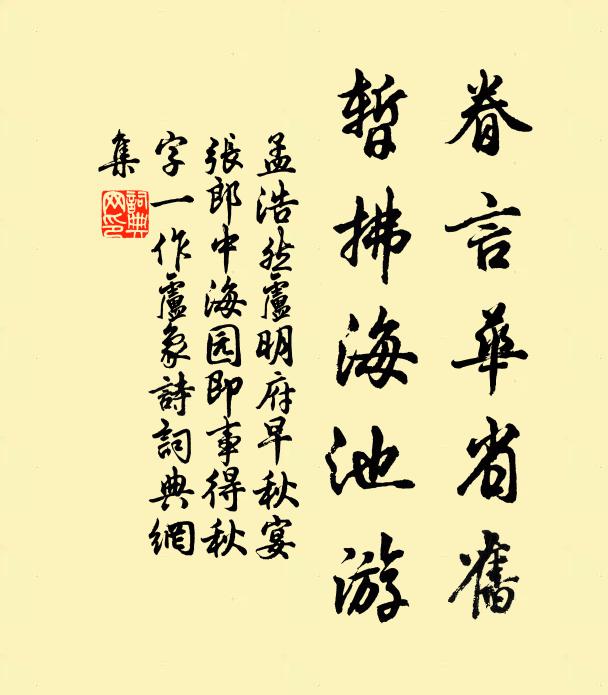 眷言華省舊
暫拂海池游
孟浩然盧明府早秋宴
張郎中海园即事得秋
字一作盧象詩詞典網
集
詞典
网印